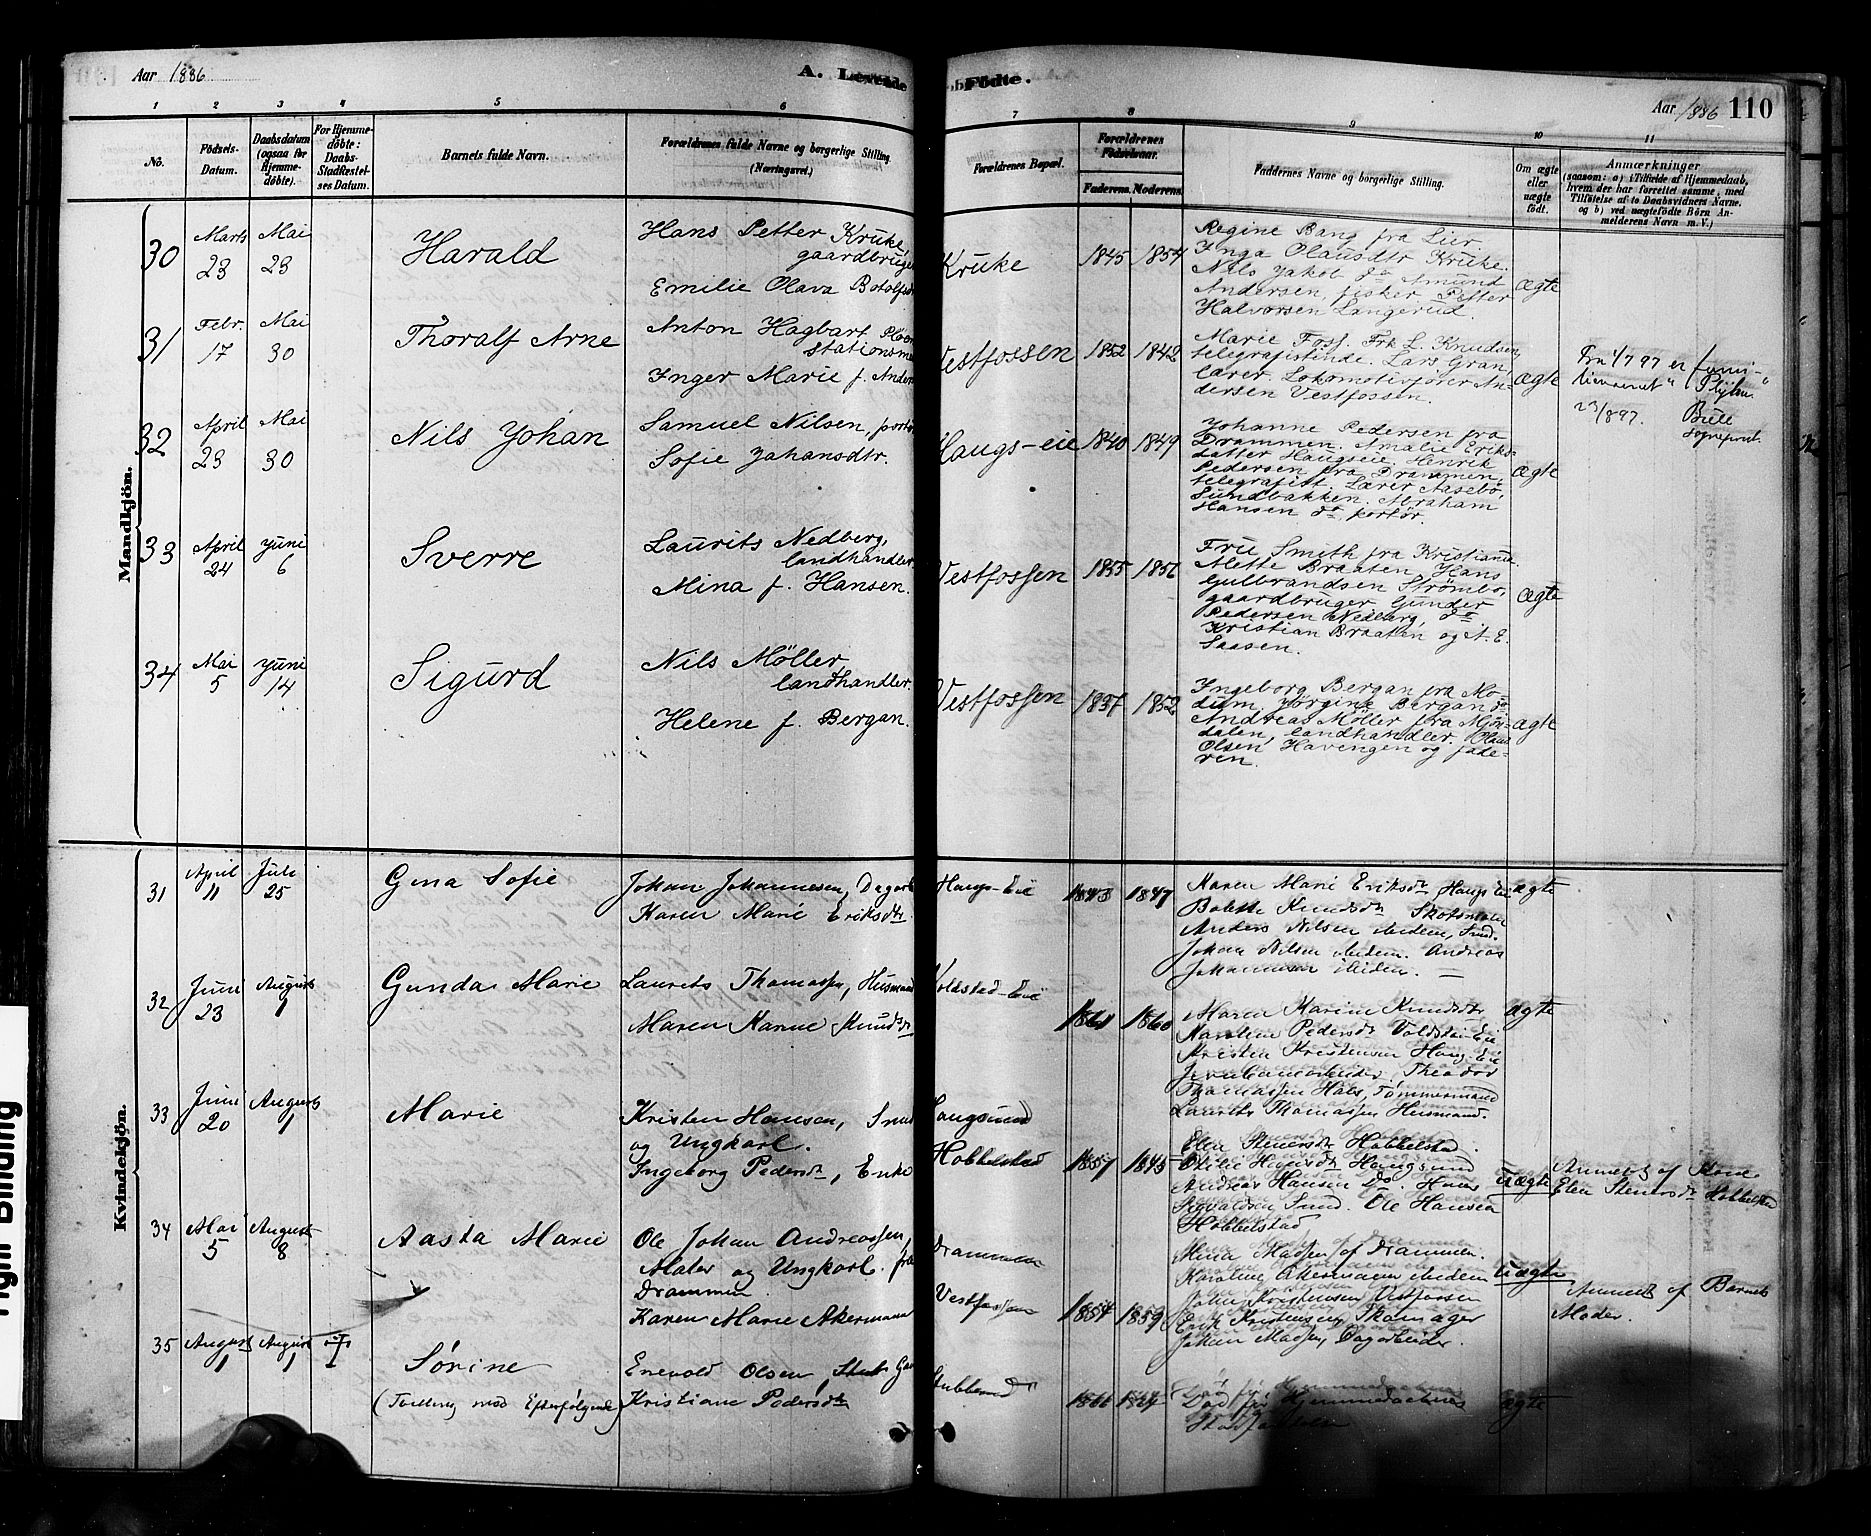 Aar 1886
A. Levende
Födte.
Aar 1886 110
1 2 3 4 5 6 7 8 9 10 11
No.
Födsels-
Datum.
Daabsdatum
(ogsaa for
Hjemme-
döbte).
For Hjemme-
döbte:
Daabs-
Stadfæstel-
ses Datum.
Barnets fulde Navn.
Forældrenes fulde Navne og borgerlige Stilling.
(Næringsvei.)
Forældrenes Bopæl.
Forældrenes
Födselsaar.
Faderens. Moderens.
Faddernes Navne og borgerlige Stilling.
Om ægte
eller
uægte
födt.
Anmærkninger
(saasom: a) i Tilfælde af Hjemmedaab,
hvem der har forrettet samme, med
Tilföielse af to Daabsvidners Navne.
og b) ved uægtefödte Börn An-
melderens Navn m. V.)
Mandkjön.
30
Marts
23
Mai
23
Harald
Hans Petter Kruke,
gaardbruger
Emilie Olava
Kruke
1845 1854
Regine Bang fra Lier
Inga Olausdtr Kruke.
Nils Jakob do Amund
Andersen, fisker Petter
Halvorsen Langerud.
ægte
31
Febr.
17
Mai
30
Thoralf Arne
Anton Hagbart
stationsme
Inger Marie f.
Vestfossen
1852 1842
Marie Foss. Frk L. Knudsen,
telegrafistinde. Lars Gran,
lærer. Lokomotivförer An-
dersen Vestfossen.
ægte
Fra 1/7 97 er fami-
lienavnet
23/8 97.
Sogneprest.
32
April
23
Mai
30
Nils Johan
Samuel Nilsen,
Sofie Johansdtr.
Haugs-eie
1840 1849
Johanne Pedersen fra
Drammen. Amalie Eriks-
datter Haugseie. Henrik
Pedersen fra Drammen,
telegrafist. Lærer Aasebö,
Sundbakken. Abraham
Hansen do, portör.
ægte
33
April
24
Juni
6
Sverre
Laurits Nedberg,
landhandler
Mina f. Hansen.
Vestfossen
1855 1856
Fru Smith fra Kristiania
Alette Braaten. Hans
Gulbrandsen Strömbo,
gaardbruger. Gunder
Pedersen Nedberg, do.
Kristian Braaten og A. E.
Saasen.
ægte
34
Mai
5
Juni
14
Sigurd
Nils Möller,
landhandler.
Helene f. Bergan.
Vestfossen
1837 1852
Ingeborg Bergan fra Mo-
dum. Jörgine Bergan do
Andreas Möller fra Mjön-
dalen, landhandler.
Olsen Havengen og fade-
ren.
ægte
Kvindekjön.
31
April
11
Juli
25
Gina Sofie
Johan Johannesen,
Karen Marie Eriksdtr
Haugs-Eie
1843 1847
Karen Marie Eriksdtr Haugs Eie
Bolette Knudsdtr Skotsmoen
Anders Nilsen ibidem, Smed.
Johan Nilsen ibidem. Andreas
Johannesen ibidem. —
ægte
32
Juni
23
August
1
Gunda Marie
Laurits Thomassen, Husmand
Maren Karine Knudsdtr
Voldstad-Eie
1861 1860
Maren Karine Knudsdtr
Karoline Pedersdtr Voldstad-Eie
Kristen Kristensen Haug-Eie
Jernbanearbeider, Theodor
Thomassen Hals, Tömmermand
Laurits Thomassen Husmand.
ægte
33
Juni
20
August
1
Marie
Kristen Hansen, Smed
og Ungkarl.
Ingeborg Pedersdtr, Enke
Haugsund
Hobbelstad
1857 1845
Elen Stenersdtr Hobbelstad
Otilie Hansdtr Haugsund
Andreas Hansen Do. Hans
Sigvaldsen Smed. Ole Hansen
Hobbelstad
Uægte
Anmeldt af
Elen Stenersdtr Hobbelstad
34
Mai
5
August
8
Aasta Marie
Ole Johan Andreassen,
Maler og Ungkarl. fra
Drammen.
Karen Marie Akermann
Drammen
Vestfossen
1857 1859
Mina Madsen af Drammen.
Karoline Akermann ibidem
John Kristensen Vestfossen
Erik Kristensen, Skomager
Johan Madsen, Dagarbeider.
Uægte
Anmeldt af Barnets
Moder.
35
August
1
August
1
Sörine
(Tvilling med Efterfölgende)
Enevold Olsen,
Kristiane Pedersdtr
Död för Hjemmedaabens
Stadfæstelse
ægte